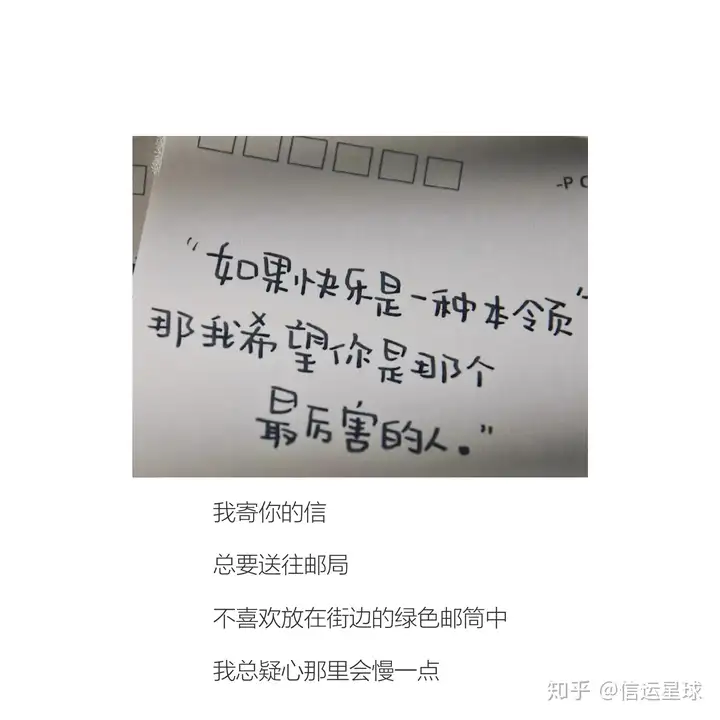 -P
“如果快乐是一种本领
那我希望你是那个
最厉害的人。”
我寄你的信
总要送往邮局
不喜欢放在街边的绿色邮筒中
我总疑心那里会慢一点
知乎 @信运星球